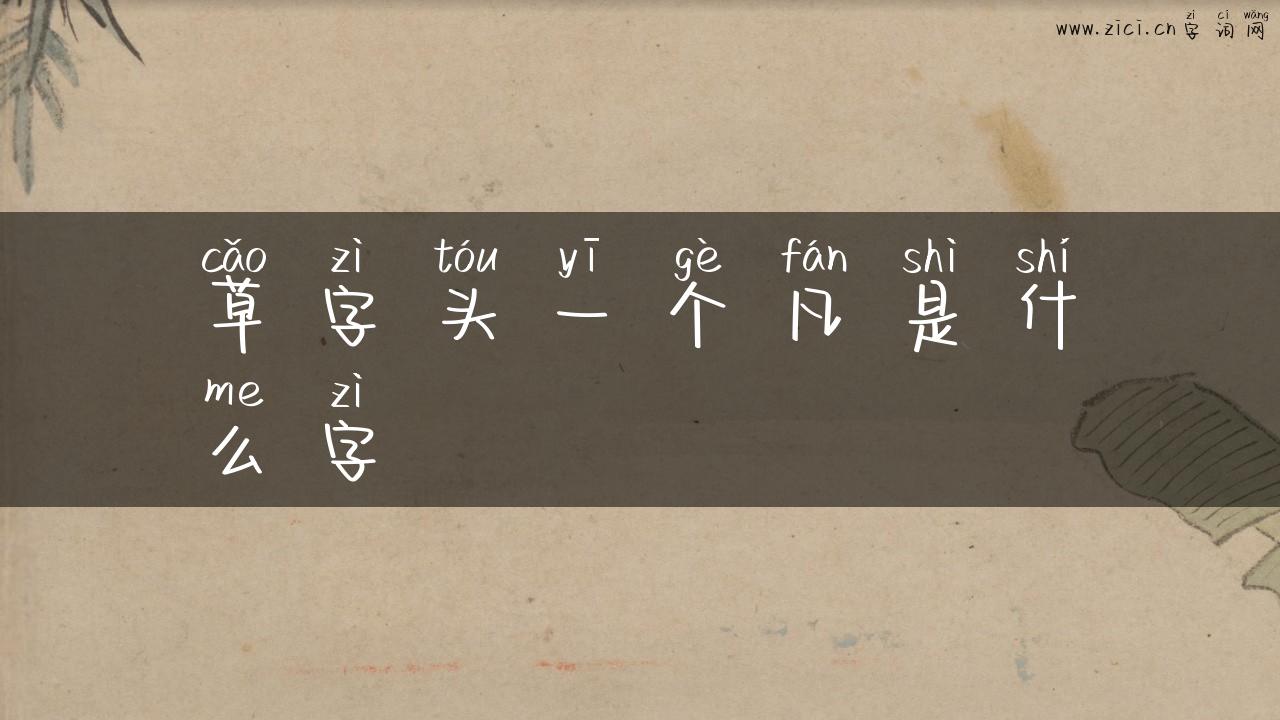 zì cí wǎng
www.zici.cn 字词网
cǎo zì tóu yī gè fán shì shí
草字头一个凡是什
me zì
么字